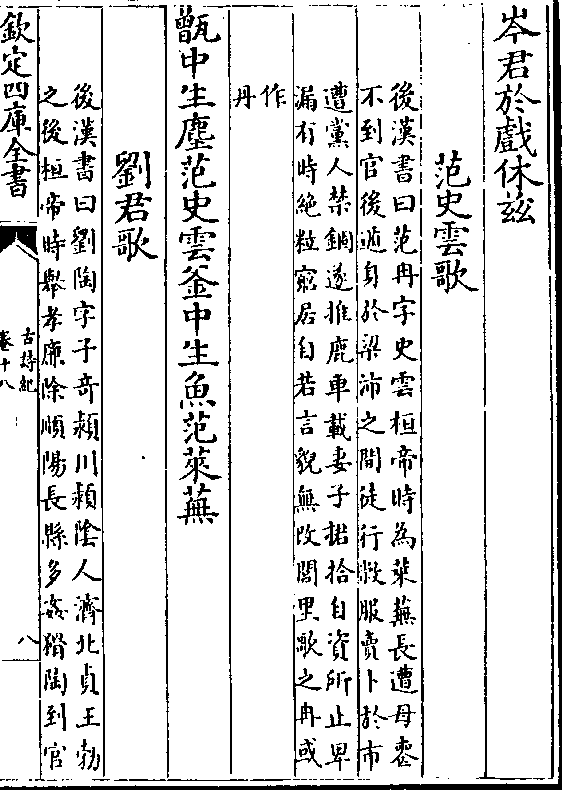 岑君於戲休兹
范史雲歌
後漢書曰范冉字史雲桓帝時為萊蕪長遭母憂
不到官後遁身於梁沛之間徒行敝服賣卜於市
遭黨人禁錮遂推鹿車載妻子捃拾自資所止卑
漏有時絶粒窮居自若言貌無改閭里歌之冉或
作丹
甑中生塵范史雲釜中生魚范萊蕪
劉君歌
後漢書曰劉陶字子奇潁川潁陰人濟北貞王勃
之後桓帝時舉孝廉除順陽長縣多姦猾陶到官
欽定四庫全書
古詩紀
卷十八
八